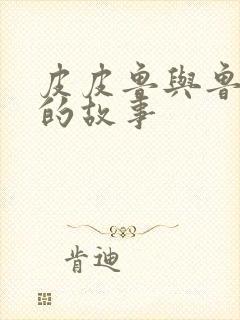 皮皮魯與魯
的故事
肯迪